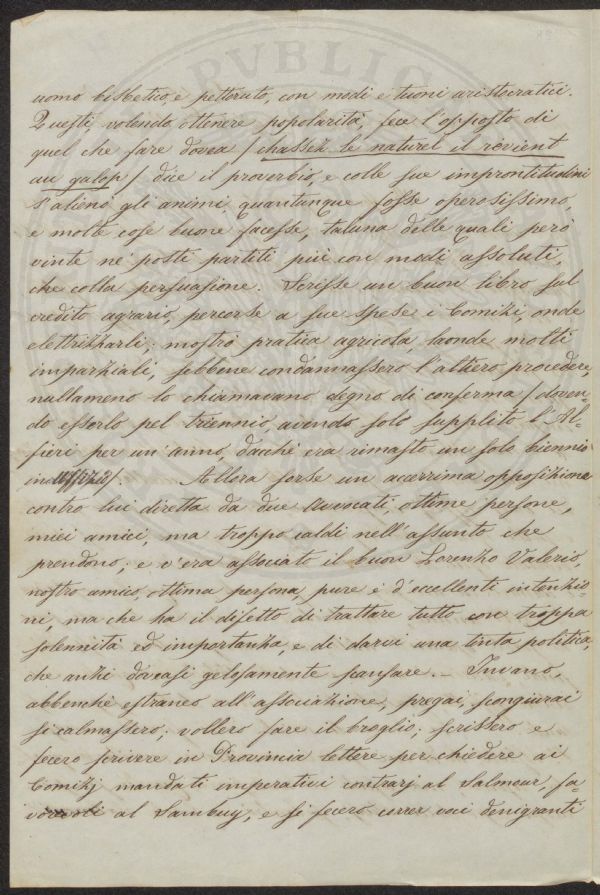 uomo bisbetico, e pettoruto, con modi e tuoni aristocratici.
Questi volendo ottenere popolarità, fece l'opposto di
quel che fare dovea (chassez le naturel il revient
au galop) dice il proverbio, e colle sue improntitudini
s'alienò gli animi quantunque fosse operosissimo,
e molte cose buone facesse, taluna delle quali però
vinte ne' posti partiti più con modi assoluti,
che colla persuasione. Scrisse un buon libro sul
credito agrario, percorse a sue spese i Comizi, onde
elettrizzarli; mostrò pratica agricola, laonde molti
imparziali, sebbene condannassero l'altiero procedere,
nullameno lo chiamavano degno di conferma (doven-
do esserlo pel triennio, avendo solo supplito l'Al-
fieri per un'anno, dacchè era rimasto un solo biennio
in uffizio). Allora sorse un accerrima opposizione
contro lui diretta da due Avvocati, ottime persone,
miei amici, ma troppo caldi nell'assunto che
prendono; e v'era associato il buon Lorenzo Valerio,
nostro amico, ottima persona pure e d'eccellenti intenzio-
ni, ma che ha il difetto di trattare tutto con troppa
solennità ed importanza, e di darvi una tinta politica,
che anzi doveasi gelosamente scansare. _ Invano,
abbenchè estraneo all'associazione, pregai, scongiurai
si calmassero; vollero fare il broglio; scrissero e
fecero scrivere in Provincia lettere per chiedere ai
Comizj mandati imperativi contrarj al Salmour, fa-
vorevoli al Sambuy, e si fecero correr voci denigranti
PVBLIC